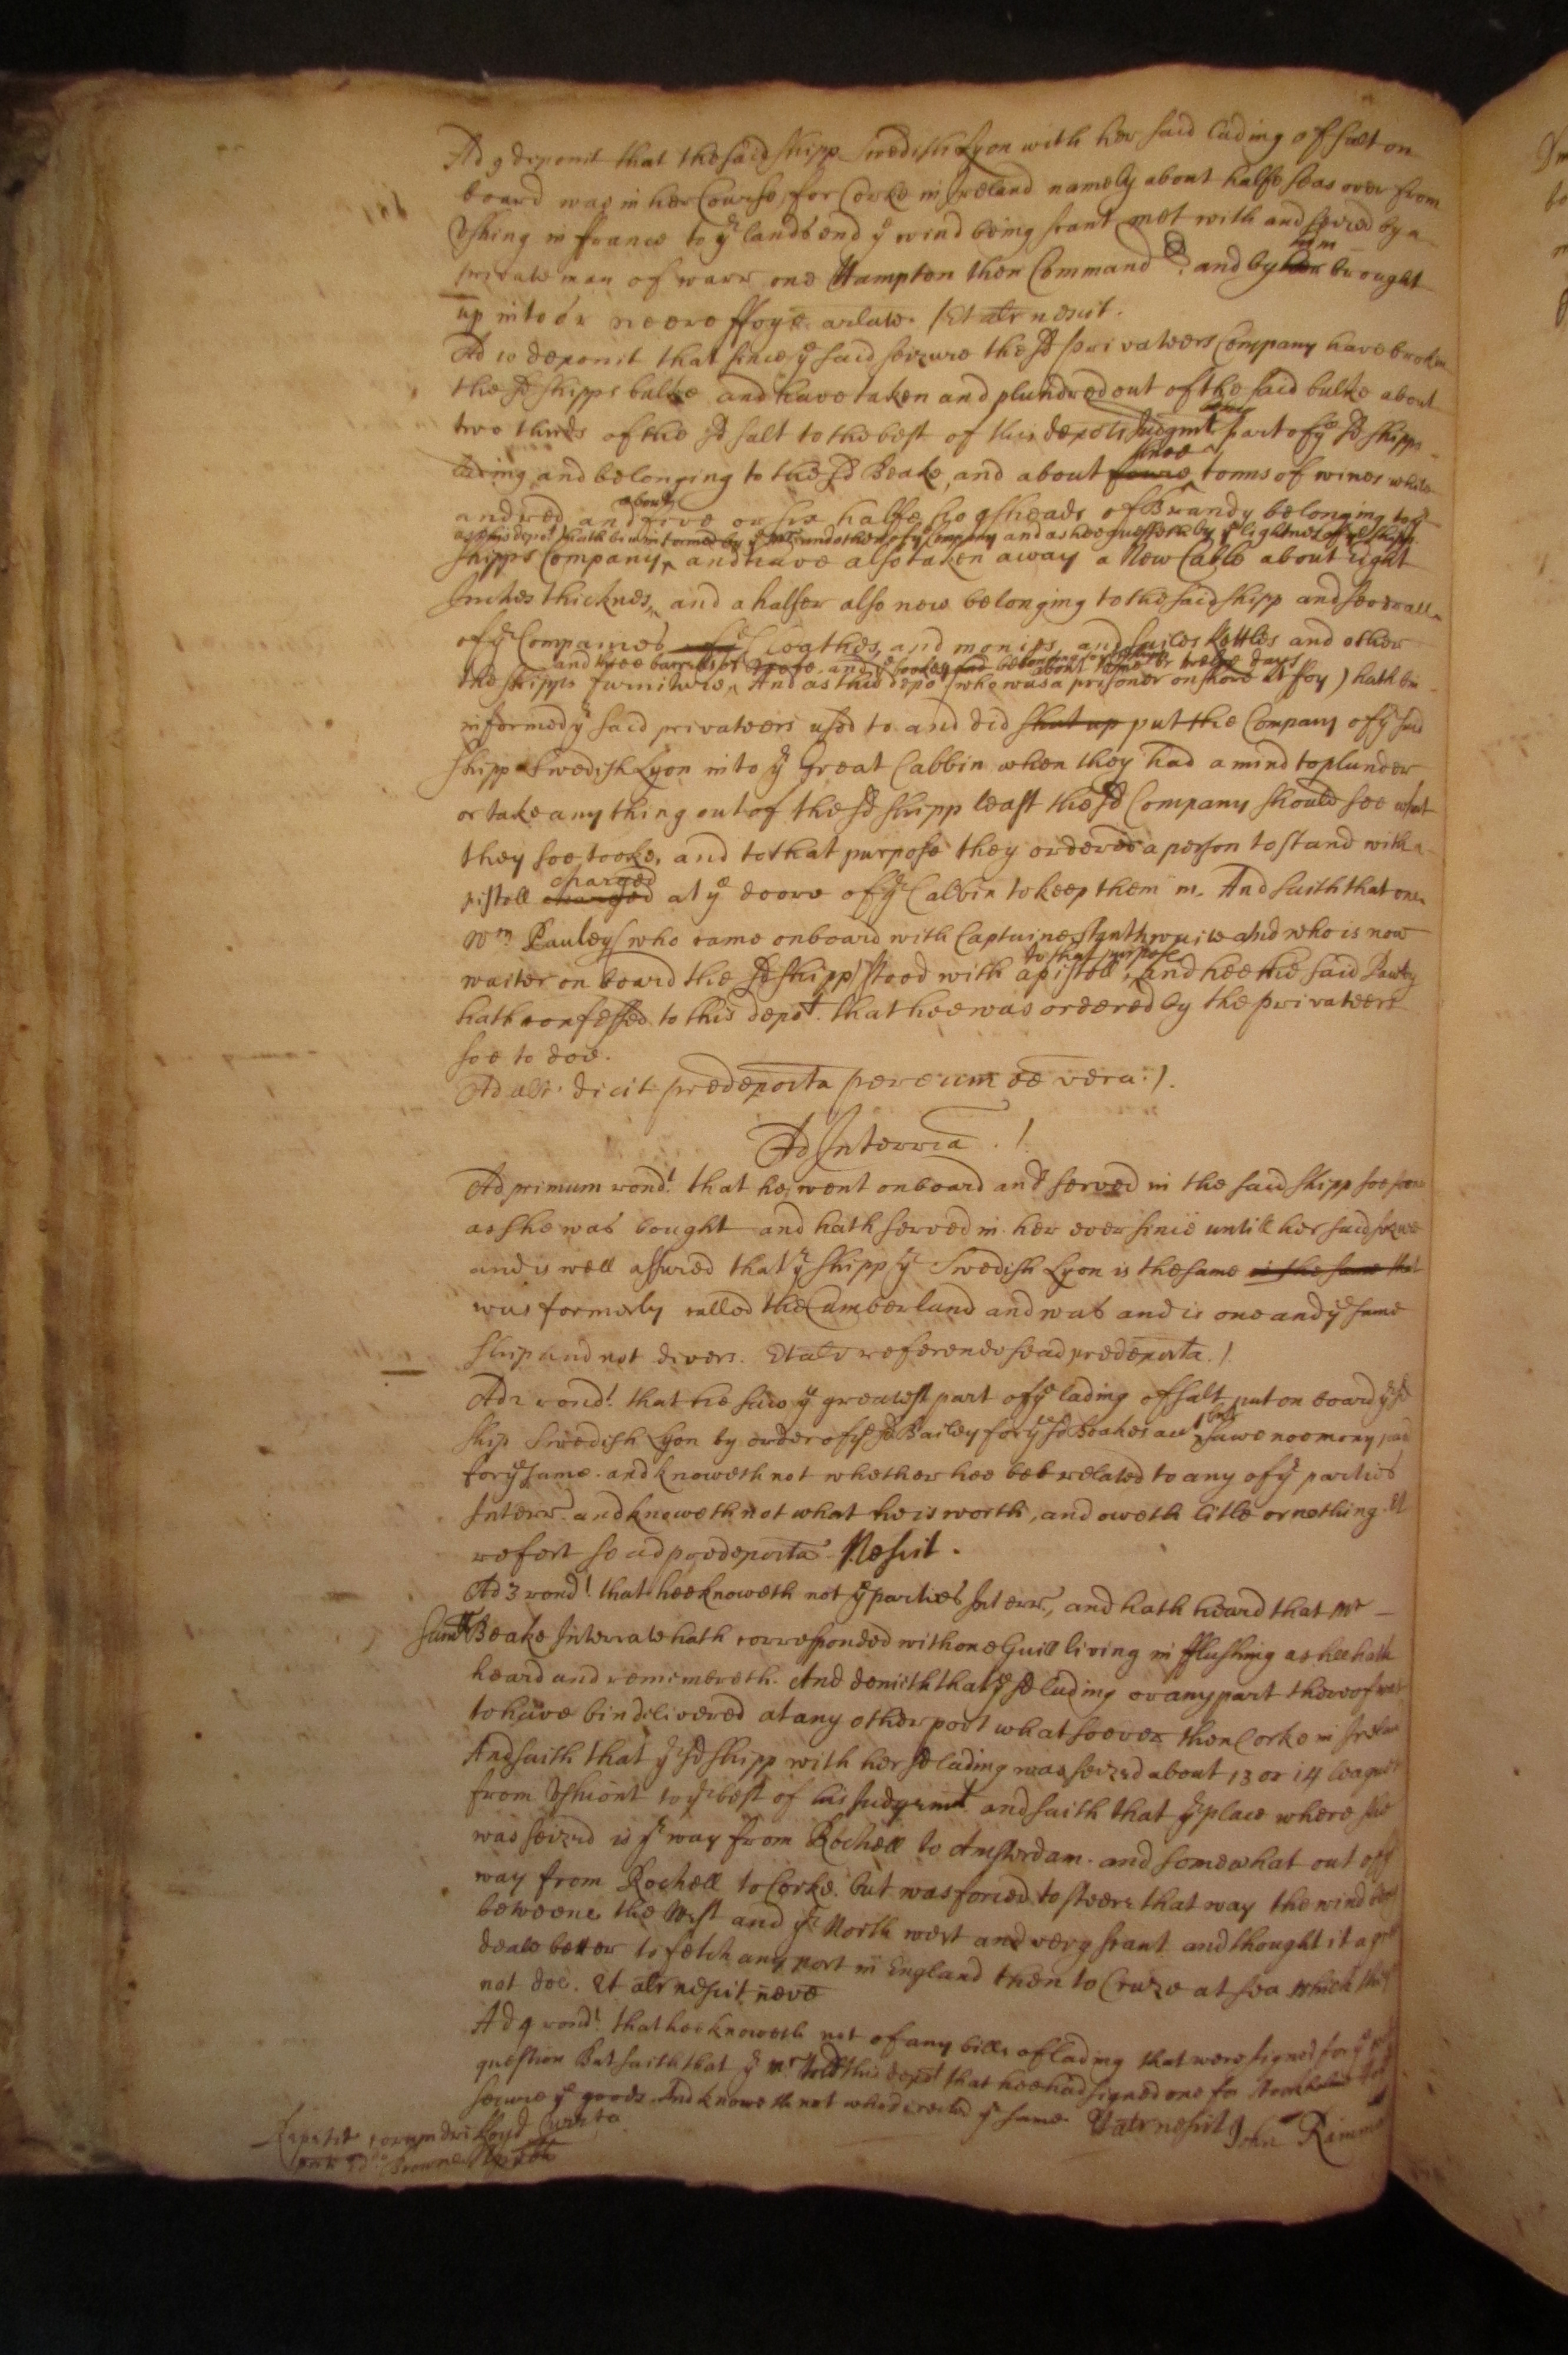 Ad 9 deponit that the said shipp Swedish Lyon with her said lading of salt on
board was in her Course for Corke in Ireland namely about halfe seas over from
Vshing in ffrance to ye lands end ye wind being scant met with and seized by a
private man of warr one Hampton then Command er and by him brought
up into or neere ffoye. Et altr nescit.
Ad 10 deponit that since ye said seizure the sd privateers Company have broken
the sd shipps bulke and have taken and plundred out of the said bulke about
two thirds of the sd salt to the best of this depots Judgmt part of ye sd shipps
lading and belonging to the sd Beake, and about three tonns of wines white
and red and about five or six halfe hogsheads of Brandy belonging to ye
as this depot hath bin informed by ye Mr and others of ye Company and as hee guesseth by ye lightnes of ye shipp
shipps Company, and have also taken away a New Cable about Eight
Inches thicknes, and a halser also new belonging to the said shipp and severall
of ye Companies Cloathes, and monies, and sailes kettles and other
and three barrells of
the shipps furniture, And as this depot (who was a prisoner on shore at ffoy about some twelve days) hath bin
informed ye said privateers used to and did shut up put the Company of ye said
shipp Swedish Lyon into ye Great Cabbin when they had a mind to plunder
or take any thing out of the sd shipp least the sd Company should see what
they soe tooke, and to that purpose they ordered a person to stand with a
pistoll charged at ye doore of ye Cabbin to keep them in. And saith that one
Wm Pauley (who came onboard with Captaine and who is now
waiter on board the sd shipp) stood with a pistoll to that purpose, and hee the said Pauley
hath confessed to this depot. that hee was ordered by the privateers
soe to doe.
Ad ult. dicit predeposita per eum ee vera :/.
Ad Interria . /.
Ad primum rondt. that he went onboard and served in the said shipp soe soone
as she was bought and hath served in her ever since untill her said seizure
and is well assured that ye shipp ye Swedish Lyon is the same is the same that
was formerly called the Cumberland and was and is one and ye same
ship and not divers. Et altr referendo se ad predeposita. /.
Ad 2 rondt. that he saw ye greatest part of ye lading of salt put on board ye sd
ship Swedish Lyon by order of ye sd Bailey for ye sd Beakes acct but sawe noe mony paid
for ye same. and knoweth not whether hee bee related to any of ye parties
Interr. and knoweth not what he is worth, and oweth litle or nothing. Et
refert se ad predeposita Nescit.
Ad 3 rondt. that hee knoweth not ye parties Interr, and hath heard that Mr
Saml Beake Interrate hath corresponded with one Guill living in fflushing as hee hath
heard and remembreth. And denieth that ye sd lading or any part thereof was
to have bin delivered at any other port whatsoever then Corke in Ireland
And saith that ye sd shipp with her sd lading was seized about 13 or 14 leagues
from Vshiont to ye best of his Judgemt and saith that ye place where she
was seized is ye way from Rochell to Amsterdam. and somewhat out of ye
way from Rochell to Corke. but was forced to steere that way the wind being
betweene the West and ye North west and very scant and thought it a great
deale better to fetch any port in England then to Cruze at sea which they
not doe. Et altr nescit
Ad 4 rondt. that hee knoweth not of any bills of lading that were signed for ye
question But saith that ye Mr told this depot that hee had signed one for
secure ye goods. And knoweth not who directed ye same Et altr nescit John Rimmer
Repetit coram dri lloyd
prnte Browne